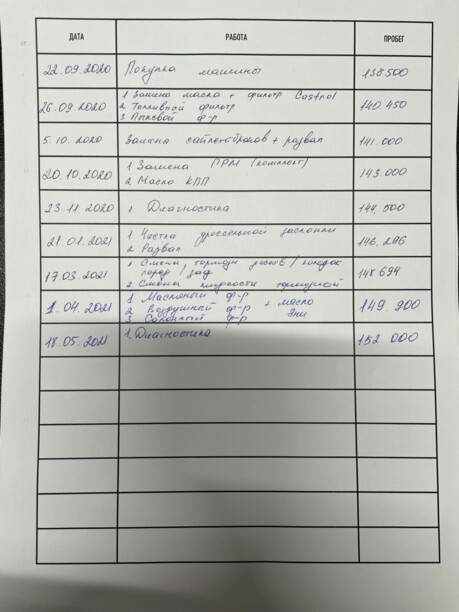 ДАТА РАБОТА ПРОБЕГ
22.09.2020 Покупка машины 138500
26.09.2020 1 Замена масла + фильтр Castrol 140.450
2 Топливной фильтр
3 Пылевой ф-р
5.10.2020 Замена сайлентблоков + развал 141.000
20.10.2020 1 Замена ГРМ (комплект) 143.000
2 Масло КПП
23.11.2020 1 Диагностика 144.500
21.01.2021 1 Чистка дроссельной заслонки 146.286
2 Развал
17.03.2021 1 Смена тормозн дисков / колодок 148694
перед / зад
2 Смена жидкости тормозной
1.04.2021 1 Масляный ф-р 149.900
2 Воздушный ф-р + масло
3 Салонный ф-р Эни
18.05.2021 1. Диагностика 152.000